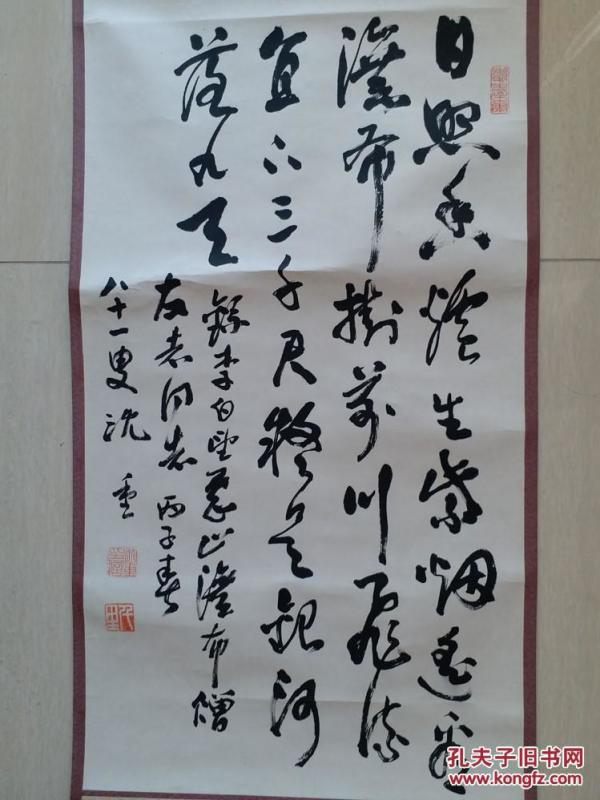 日照香爐生紫烟遥看
瀑布掛前川飛流
直下三千尺疑是銀河
落九天
錄李白望廬山瀑布贈
友同志 丙子春
八十一叟沈重
孔夫子旧书网
www.kongfz.com